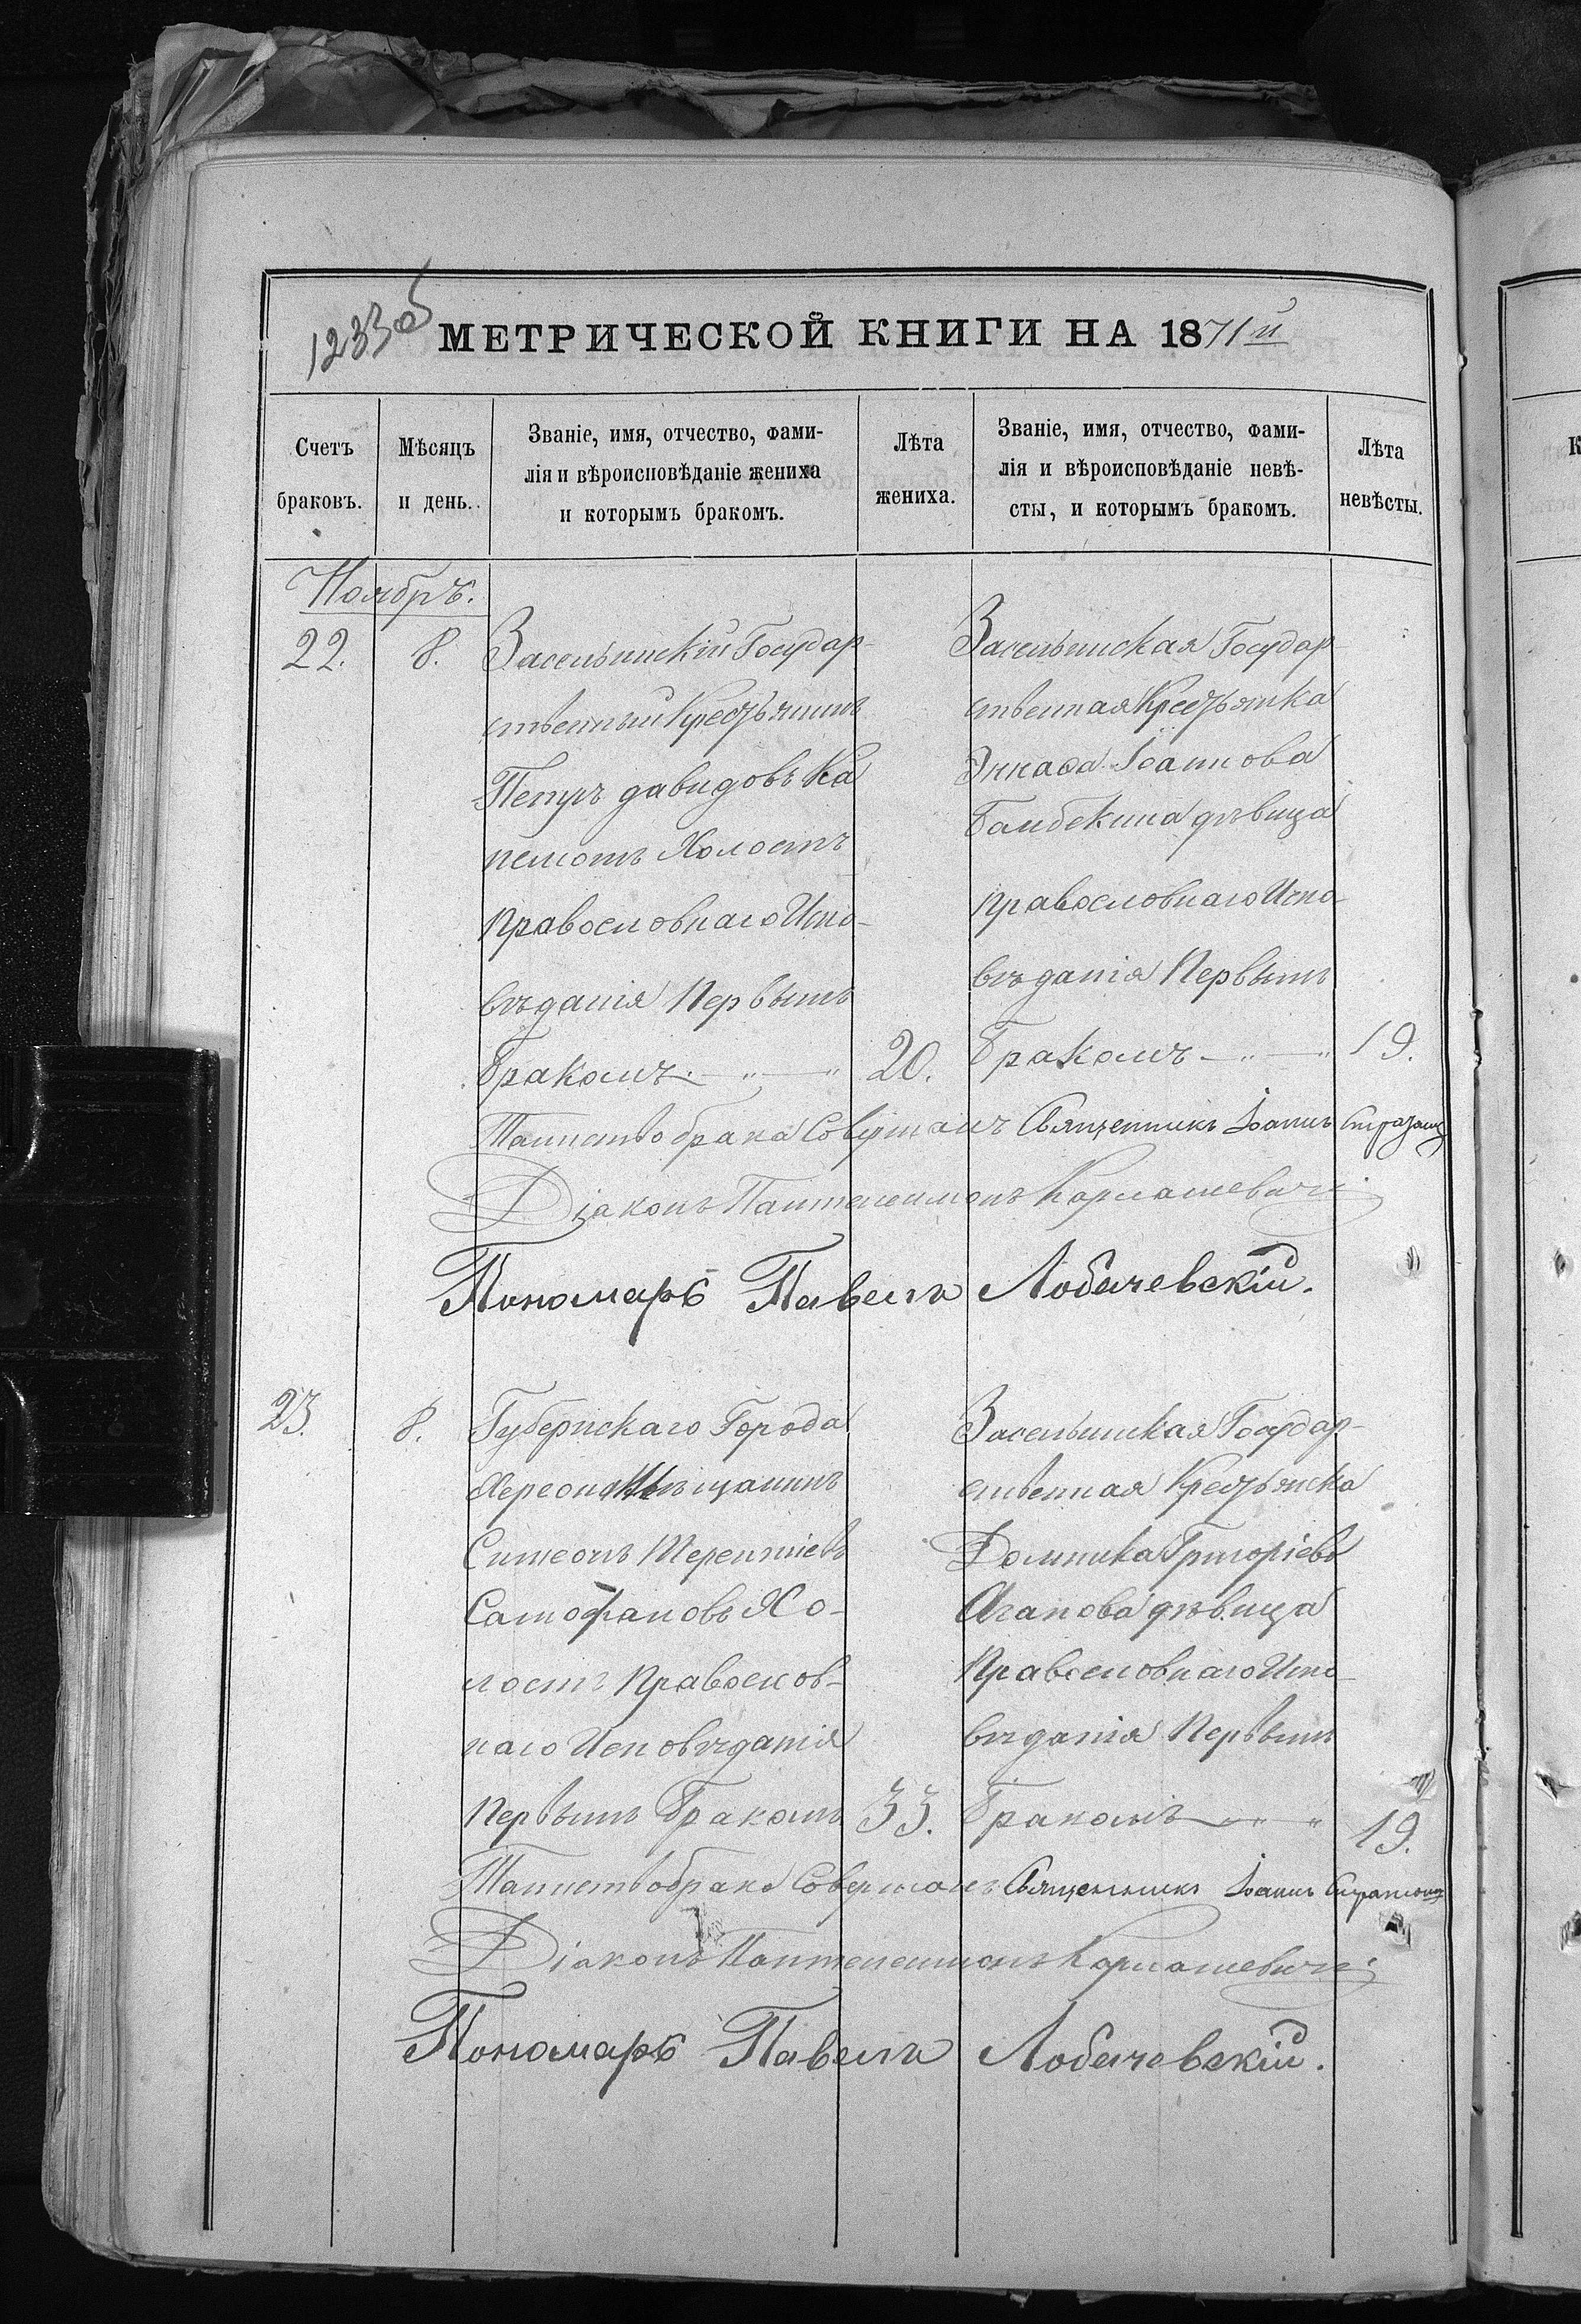 1233об
МЕТРИЧЕСКОЙ КНИГИ НА 1871й
Счетъ
браковъ.
Мѣсяцъ
и день.
Званіе, имя, отчество, фами-
лія и вѣроисповѣданіе жениха
и которымъ бракомъ.
Лѣта
жениха.
Званіе, имя, отчество, фами-
лія и вѣроисповѣданіе невѣ-
сты, и которымъ бракомъ.
Лѣта
невѣсты.
Ноябръ.
22.
8.
Засельинскій Государ-
ственный Крестьянинъ
Петръ давидовъ Ка
Холостъ
Православнаго Испо-
вѣданія Первымъ
бракомъ
20.
Засельинская Государ-
ственная Крестьянка
Іоаннова
дѣвица
православнаго Испо-
вѣданія Первымъ
бракомъ
19.
Таинство брака Совершалъ Священникъ Іоаннъ
Діаконъ Пантелеимонъ
Пономарь Павелъ Лобачевскій.
23.
8.
Губернскаго Города
Херсона Мѣщанинъ
Симеонъ Терентіевъ
Хо-
лостъ Православ-
наго Исповѣданія
Первымъ бракомъ
33.
Засельинская Государ-
ственная Крестьянка
Домника Григоріева
Агапова дѣвица
Православнаго Испо-
вѣданія Первымъ
бракомъ
19.
Таинство брака Совершалъ Священникъ Іоаннъ
Діаконъ Пантелеимонъ
Пономарь Павелъ Лобачевскій.